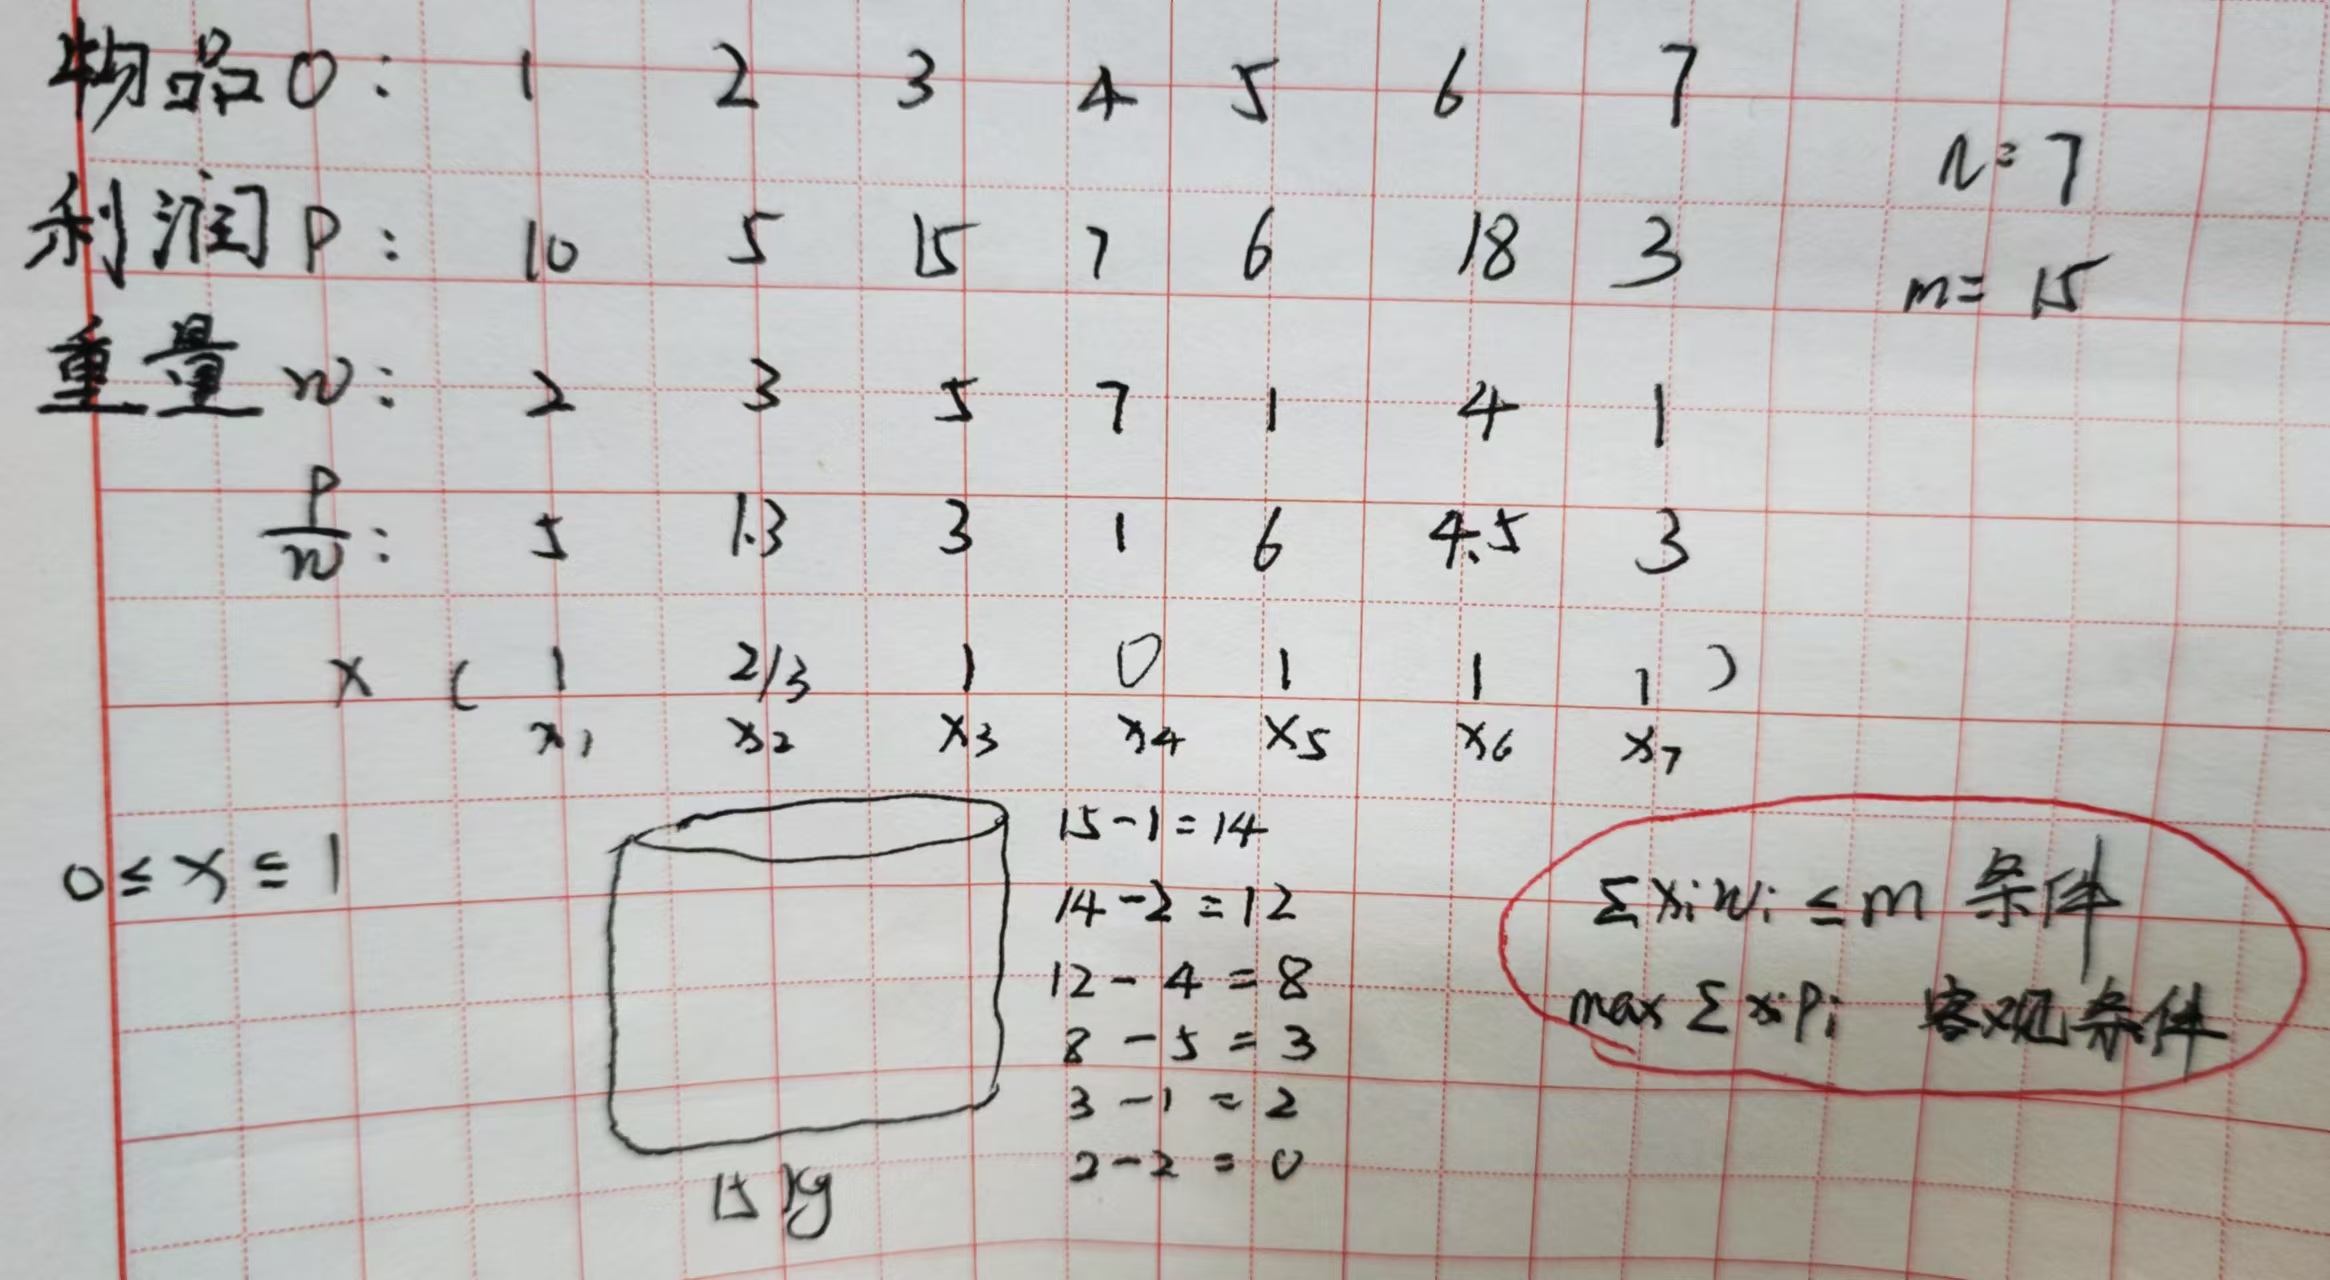 物品 O: 1 2 3 4 5 6 7
n=7
利润 P: 10 5 15 7 6 18 3
m= 15
重量 w: 2 3 5 7 1 4 1
P/w: 5 1.3 3 1 6 4.5 3
x ( 1 2/3 1 0 1 1 1 )
x1 x2 x3 x4 x5 x6 x7
0≤x≤1
15-1=14
14-2=12
12-4=8
8-5=3
3-1=2
2-2=0
15kg
Σxiwi≤m 条件
max Σxipi 客观条件